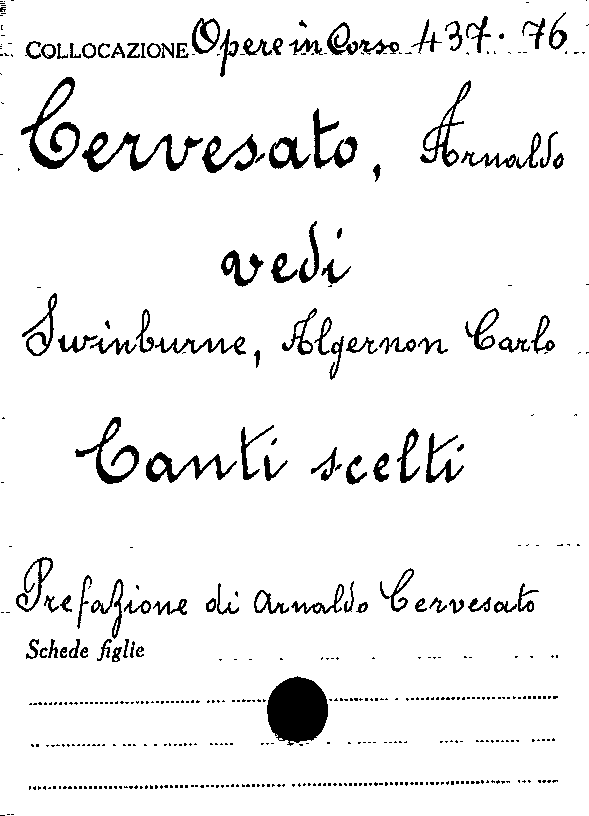 COLLOCAZIONE Opere in Corso 437. 76
Cervesato, Arnaldo
vedi
Swinburne, Algernon Carlo
Canti scelti
Prefazione di Arnaldo Cervesato
Schede figlie